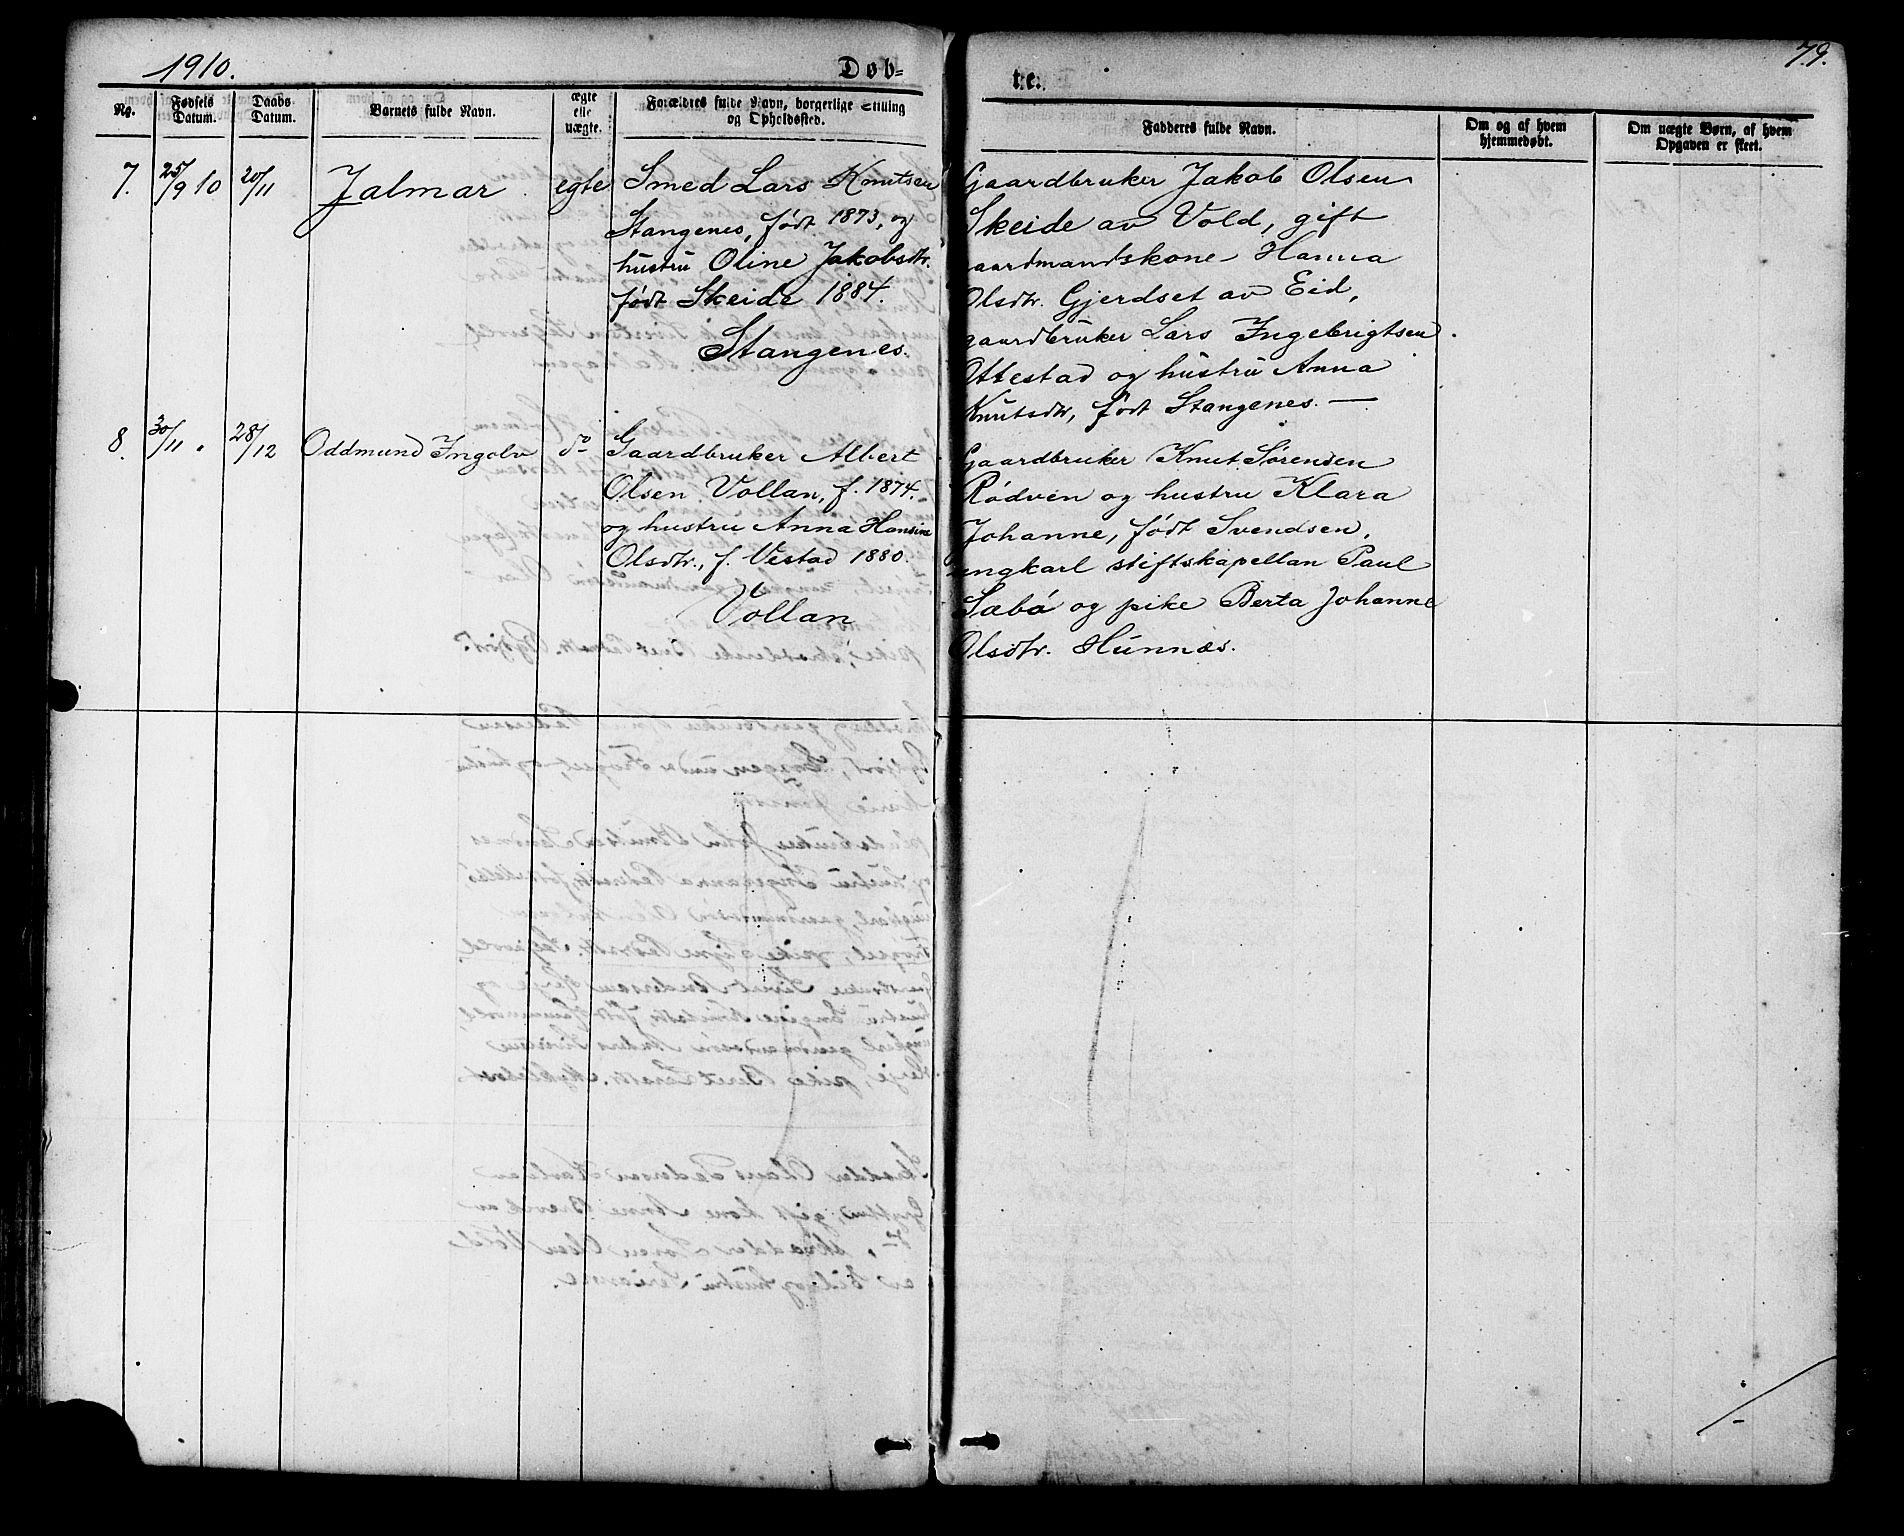 1910.
Døb-
te.
79.
No.
Fødsels Datum.
Daabs Datum.
Barnets fulde Navn.
ægte elle uægte.
Forældres fulde Navn, borgerlige Stilling og Opholdssted.
Faddernes fulde Navn.
Om og af hvem hjemmedøbt.
Om uægte Børn, af hvem Opgaven er skeet.
7.
25/9 10
20/11
Jalmar
egte
Smed Lars Knutsen
Stangenes, født 1873, og
hustru Oline Jakobsdtr.
født Skeide 1884.
Stangenes.
Gaardbruker Jakob Olsen
Skeide av Vold, gift
gaardmandskone Hanna
Olsdtr. Gjerdset av Eid,
gaardbruker Lars Ingebrigtsen
Ottestad og hustru Anna
Knutsdtr, født Stangenes. —
8.
30/11 "
28/12
Oddmund Ingolv
do
Gaardbruker Albert
Olsen Vollan, f. 1874.
og hustru Anna Hansine
Olsdtr., f. Vestad 1880.
Vollan
Gaardbruker Knut Sørensen
Rødven og hustru Klara
Johanne, født Svendsen.
ungkarl stiftskapellan Paul
Sæbø og pike Berta Johanne
Olsdtr. Hunnæs.